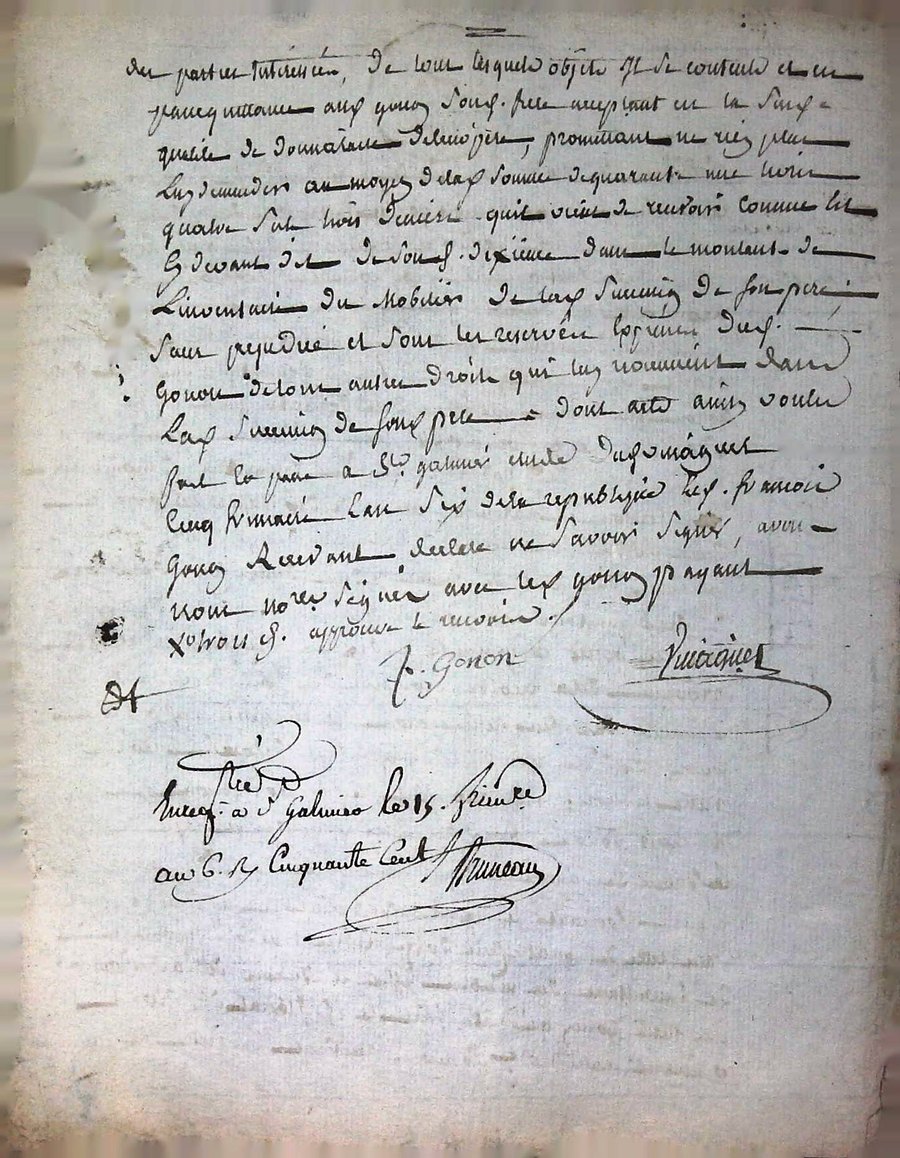 des parties Intéressées, de tout lesquels objets Il se contente et en
passe quittance aux Gonon Son d. frere acceptant en la Susd.
qualité de donnataire de leur père, promettant ne rien plus
Luy demander au moyen de lad. Somme de quarante une livres
quatre Sols trois deniers quil vient de recevoir comme Est
Cy devant dit de Son d. dixieme dans le montant de
L'inventaire du Mobilier de lad. Succession de Son pere
Sans préjudice et Sont les reserves Expresses dud.
Gonon de tous autres droits qui luy reviennent dans
Lad. Succession de Son d. pere dont acte ainsy voulu
fait et passé à St. galmier etude du Simaquet
Cinq frimaire L'an Six de la republique led. francois
Gonon Recevant declaré ne Savoir Signer, avons
nous nore. Signés avec led. gonon payant
trois approuve le
Gonon
Enregtré. à St Galmier le 15. frimre.
an 6. R Cinquante Cent. Bruneau